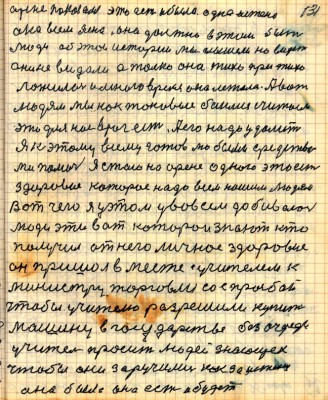 арене показал это есть и была одна истено
она всем ясна, она должна в жизни быть
люди об этой истории
они не видали а только она тихо при тихо
ложилась и много время она летела. А вот
людям мы нок таковые бились считали
это для нас враг ест, его надо удалит
я к этому всему готов любыми средства
ми помоч Я стою на арене одного это ест
здоровие которое надо всем нашим людям
Вот чего я у этом усовсем добивался
люди эти вот которои знают кто
получил от него личное здоровие
он пришол вместе с учителем к
министру торговли со с прозбой
чтобы учителю разрешили купить
машину в государстве без очереди
учител просит людей знающих
чтобы они заручили как за истину
она была она ест и будет